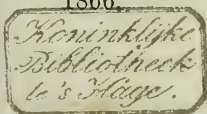 1866.
Koninklijke
Bibliotheek
te 's Hage.